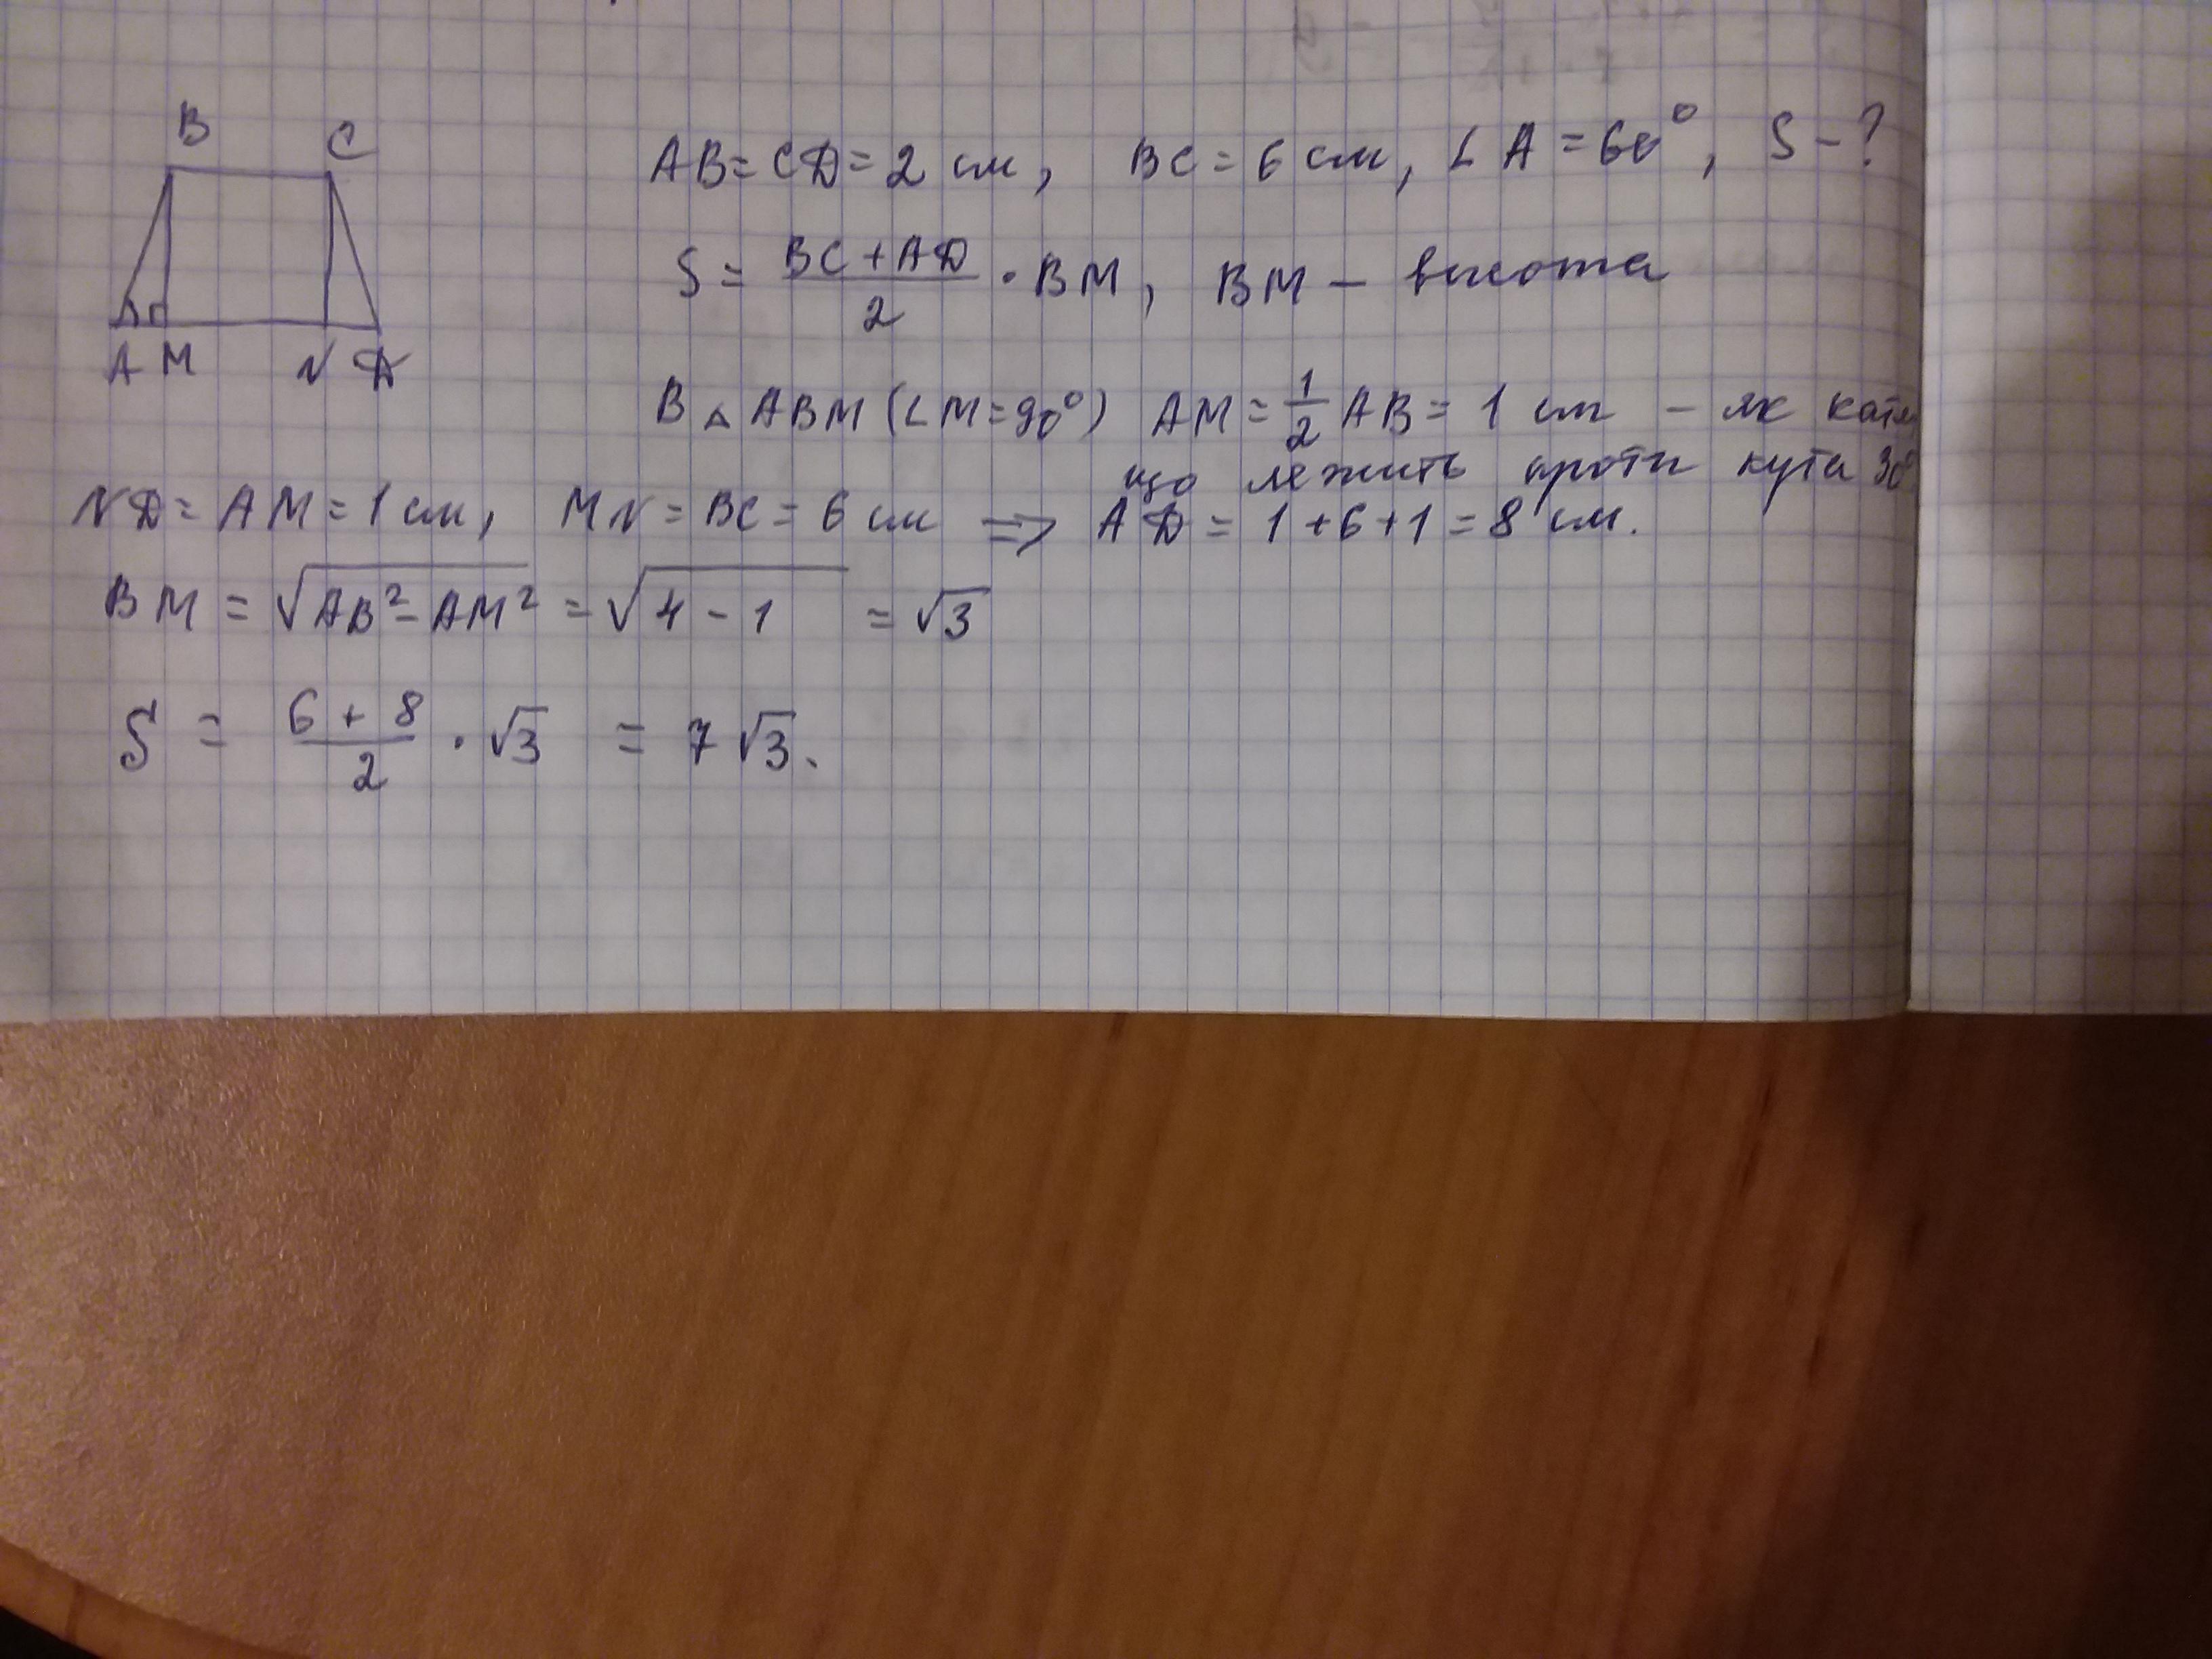 B C
A M N D
AB = CD = 2 см, BC = 6 см, ∠A = 60°, S - ?
S = (BC + AD)/2 · BM, BM – высота
В △ ABM (∠M = 90°) AM = 1/2 AB = 1 см – як
що лежить проти кута 30°
ND = AM = 1 см, MN = BC = 6 см ⇒ AD = 1 + 6 + 1 = 8 см.
BM = √(AB² – AM²) = √(4 – 1) = √3
S = (6 + 8)/2 · √3 = 7√3.